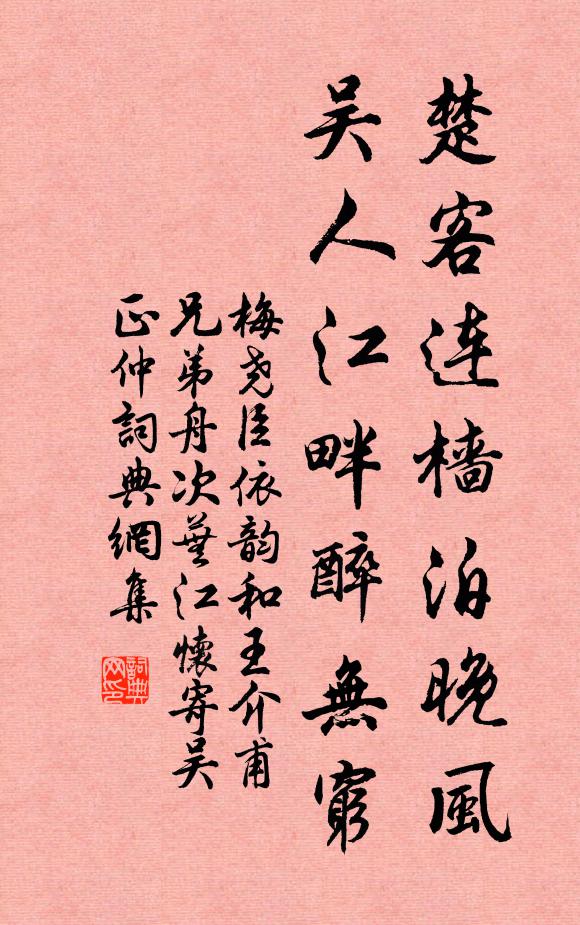 楚客连樯泊晚風
吴人江畔醉無窮
梅尧臣依韵和王介甫
兄弟舟次蕪江懷寄吴
正仲詞典網集
詞典
网印